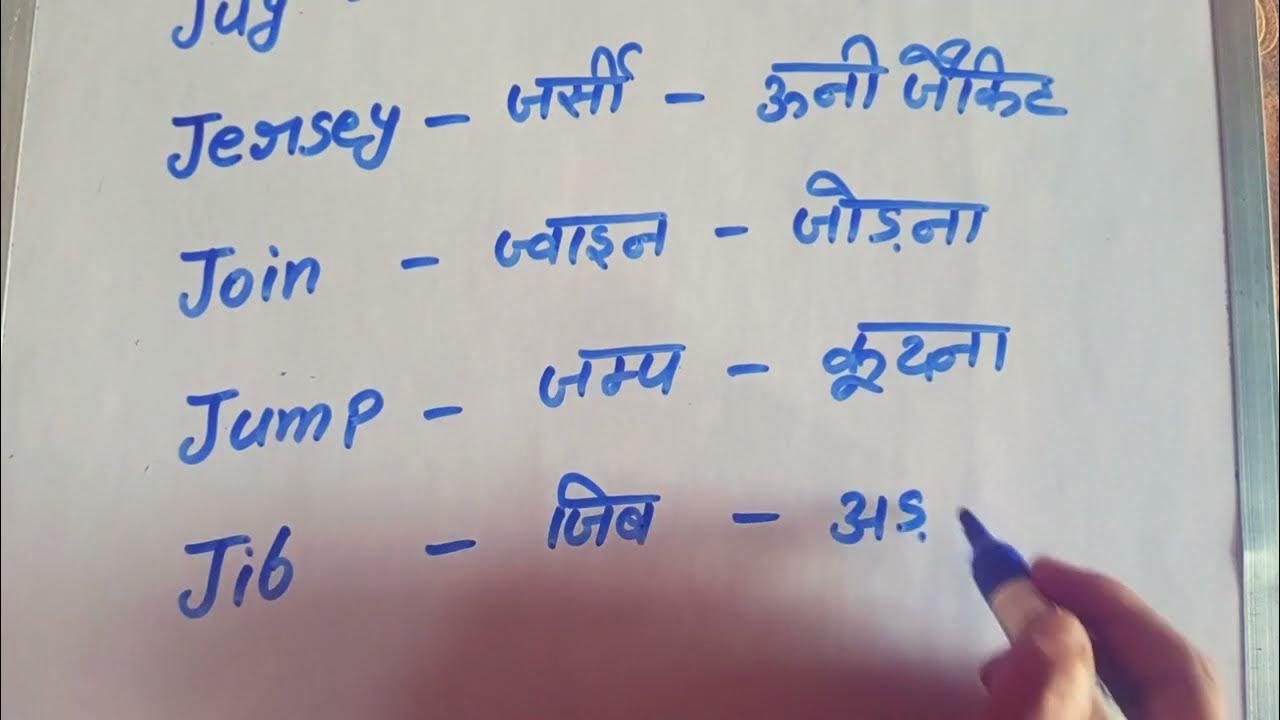 Jug
Jersey - जर्सी - ऊनी जैकिट
Join - ज्वाइन - जोड़ना
Jump - जम्प - कूदना
Jib - जिब - अड़